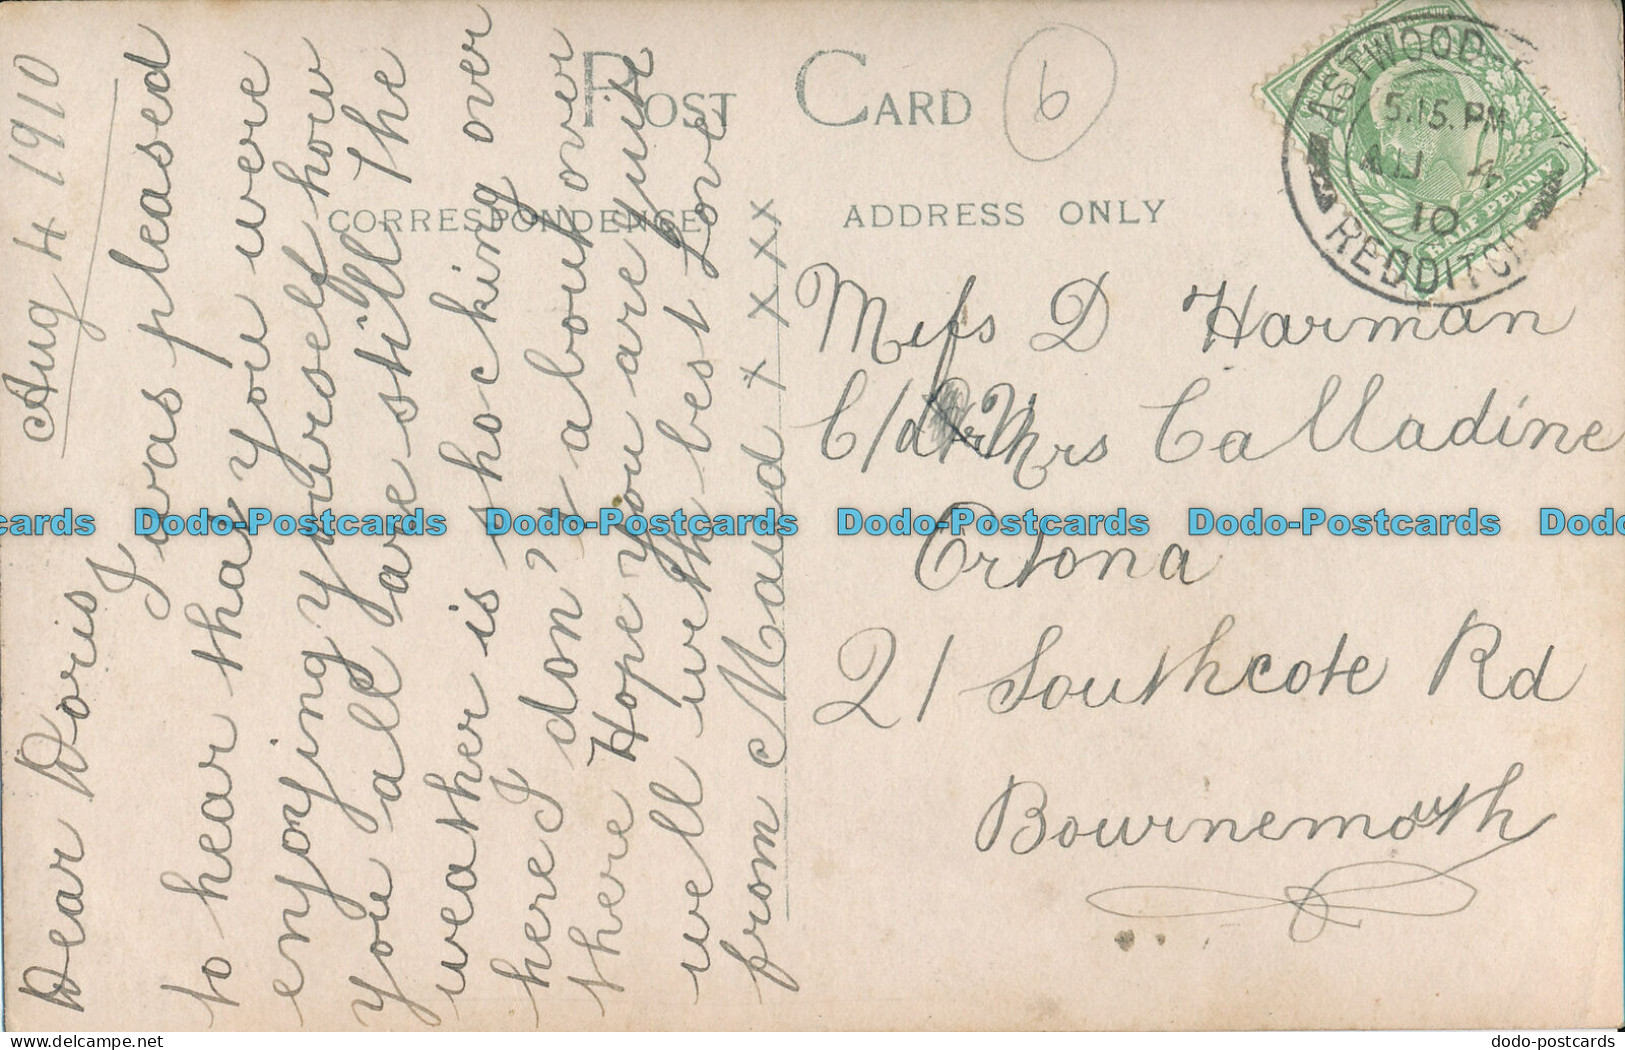 POST CARD
6
CORRESPONDENCE
ADDRESS ONLY
Aug 4 1910
Dear Doris
I was pleased
to hear that you were
enjoying yourself how
you all are still the
weather is shocking over
here I don't about over
there Hope you are quite
well with best Love
from Maud x x x x
Miss D Harman
C/o Mrs Calladine
Ortona
21 Southcote Rd
Bournemouth
ASTWOOD
5.15. PM
AU 4
10
REDDITCH
HALF PENNY
Dodo-Postcards Dodo-Postcards Dodo-Postcards Dodo-Postcards
dodo-postcards.com